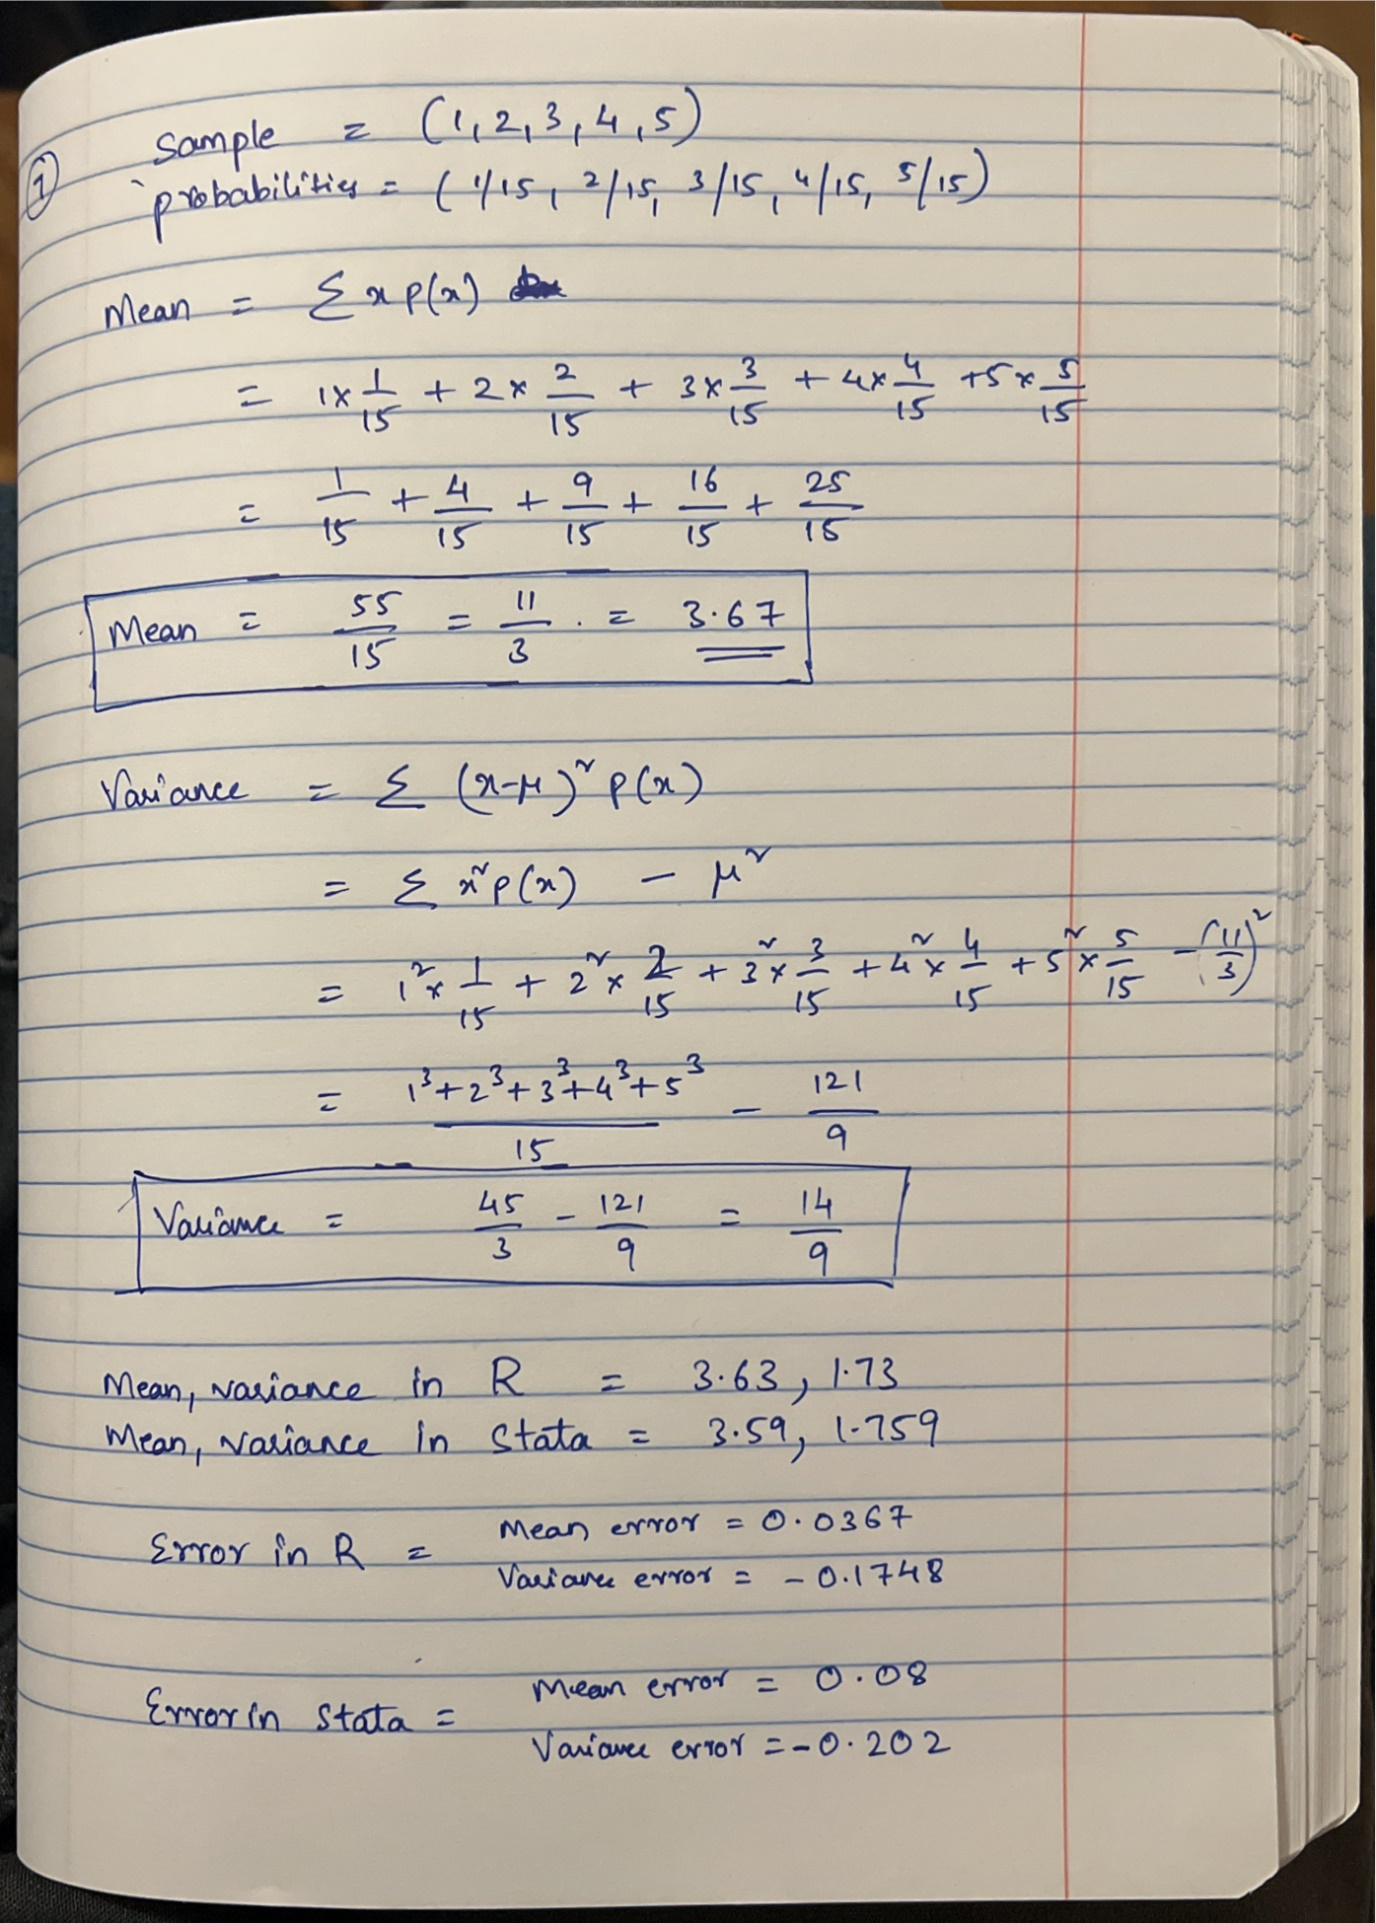 ①
Sample = (1, 2, 3, 4, 5)
probabilities = (1/15, 2/15, 3/15, 4/15, 5/15)
Mean = Σ x p(x)
= 1× 1/15 + 2× 2/15 + 3× 3/15 + 4× 4/15 + 5× 5/15
= 1/15 + 4/15 + 9/15 + 16/15 + 25/15
Mean = 55/15 = 11/3 . = 3.67
Variance = Σ (x-μ)² p(x)
= Σ x² p(x) - μ²
= 1² × 1/15 + 2² × 2/15 + 3² × 3/15 + 4² × 4/15 + 5² × 5/15 - (11/3)²
= (1³+2³+3³+4³+5³)/15 - 121/9
Variance = 45/3 - 121/9 = 14/9
Mean, variance in R = 3.63, 1.73
Mean, variance in Stata = 3.59, 1.759
Error in R = Mean error = 0.0367
Variance error = -0.1748
Error in Stata = Mean error = 0.08
Variance error = -0.202